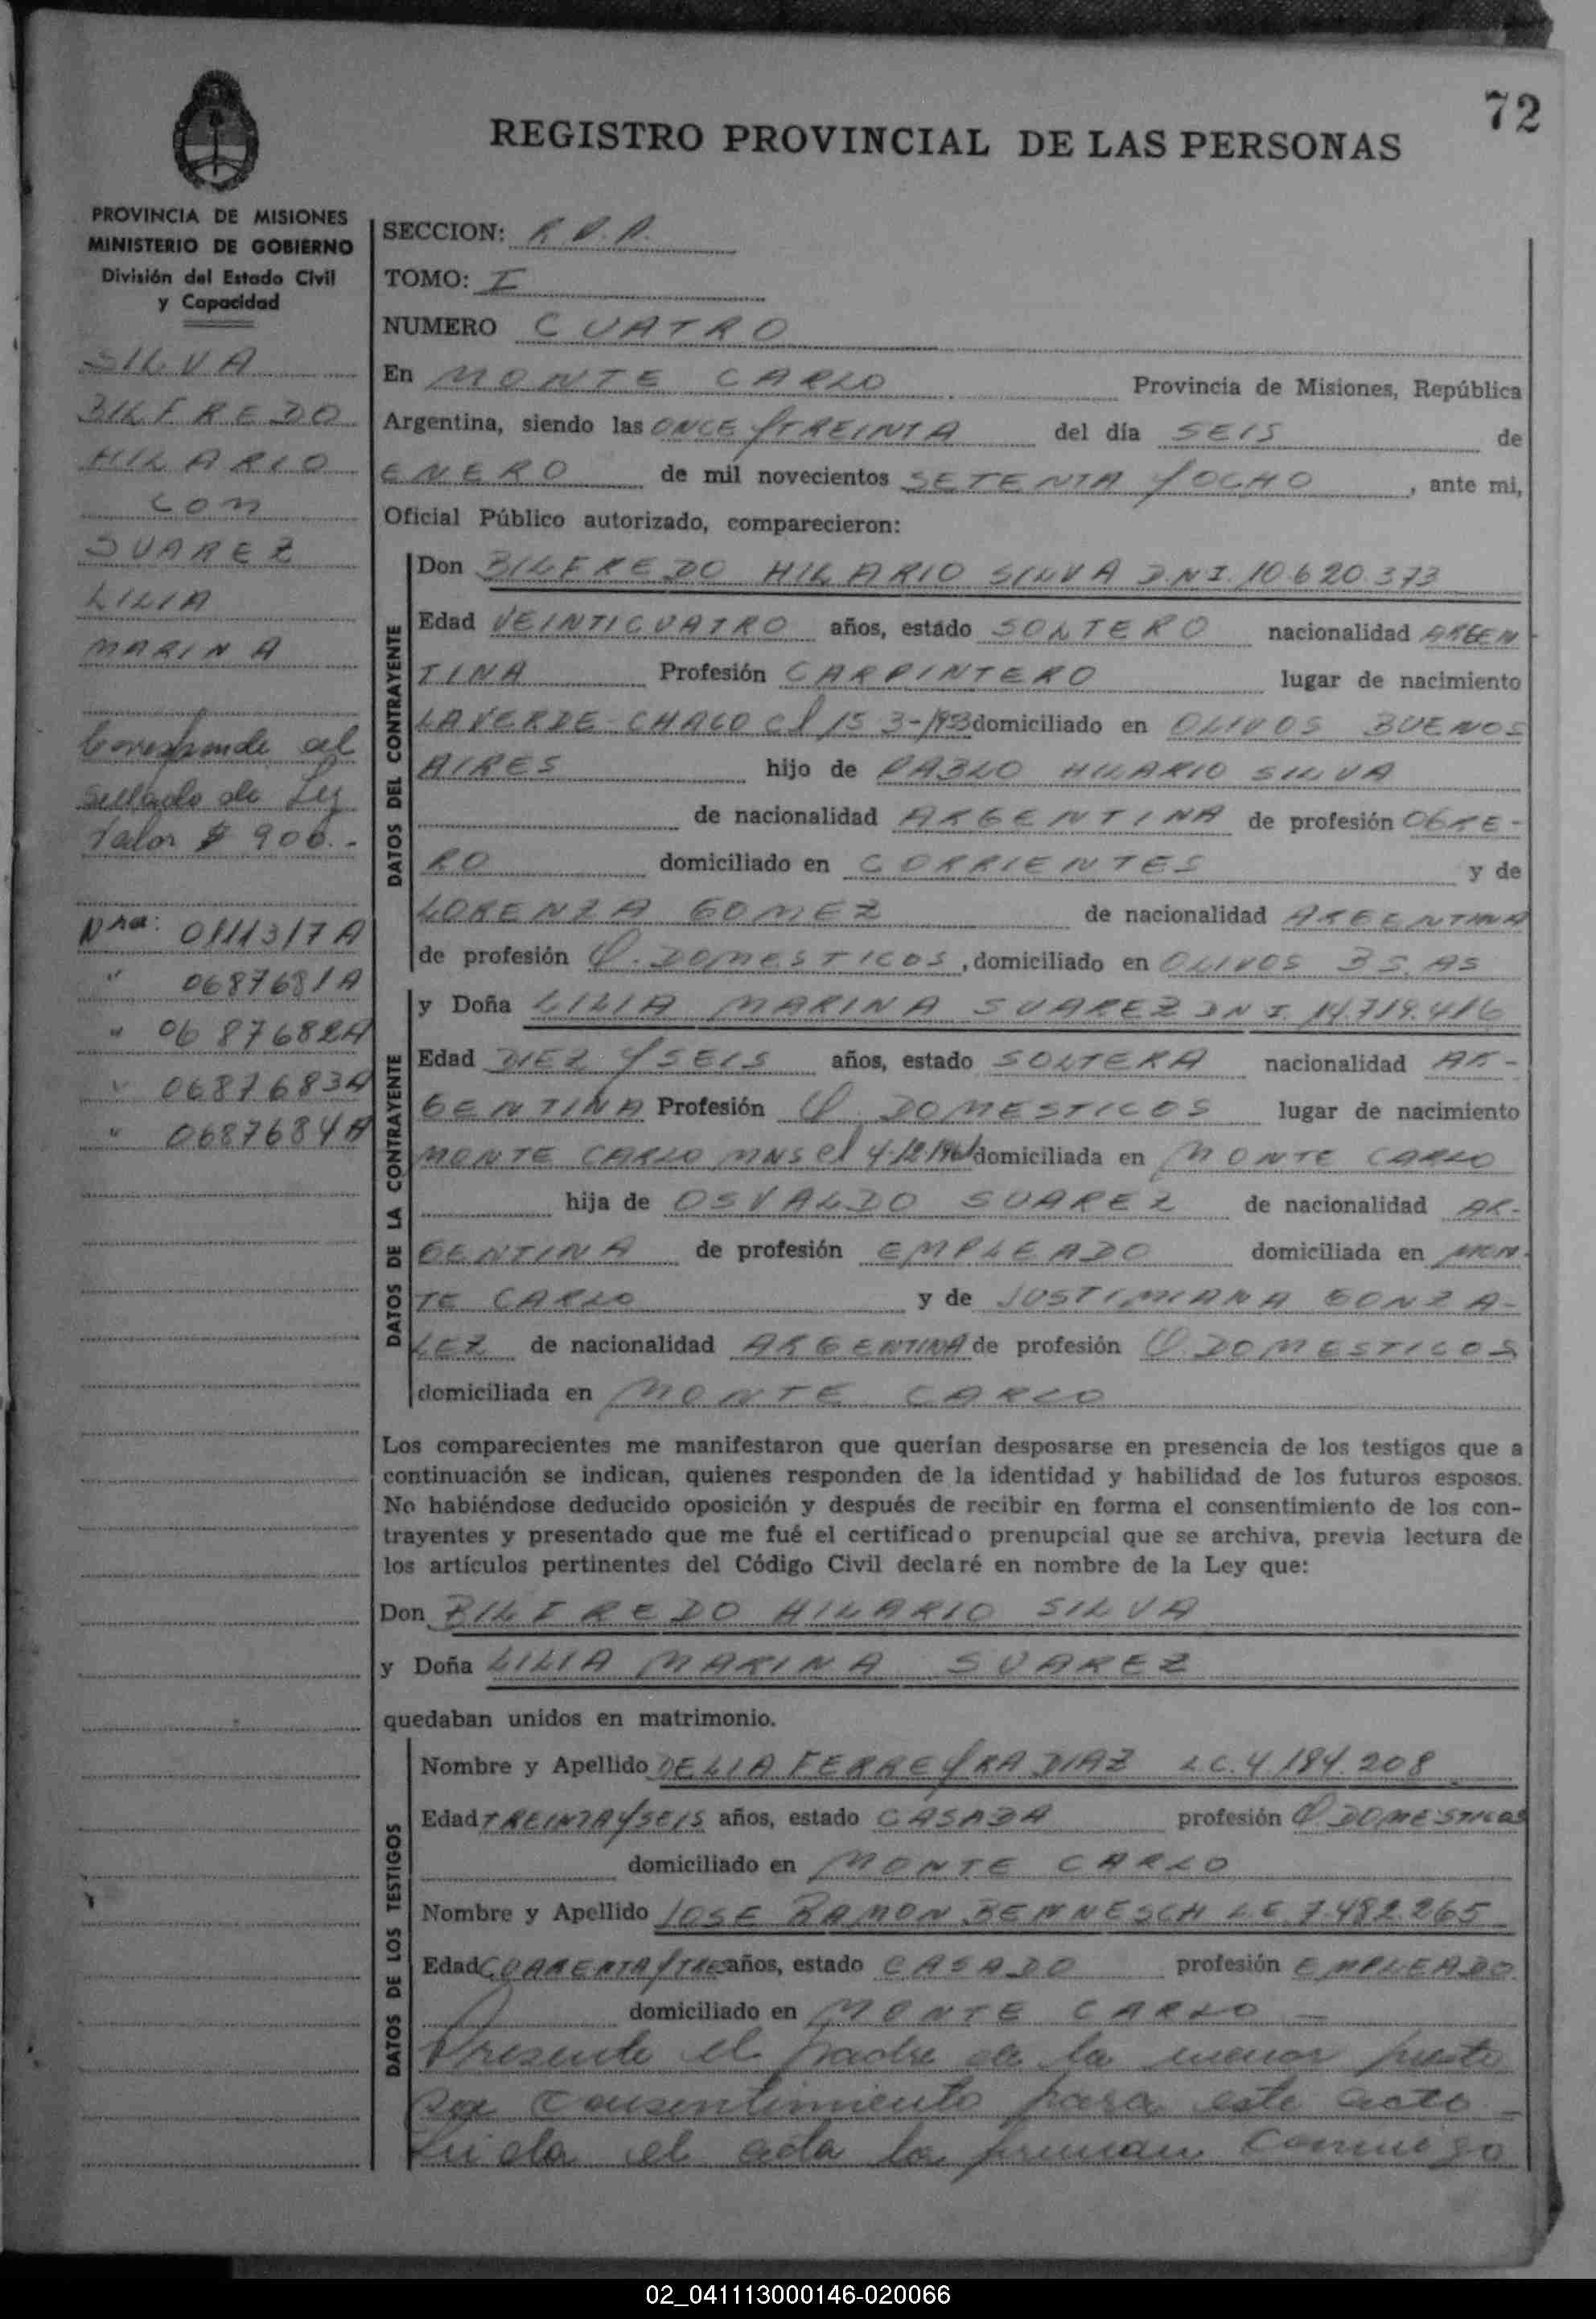 72
REGISTRO PROVINCIAL DE LAS PERSONAS
PROVINCIA DE MISIONES
MINISTERIO DE GOBIERNO
División del Estado Civil
y Capacidad
SILVA
BILFREDO
HILARIO
CON
SUAREZ
LILIA
MARINA
Corresponde al
sellado de Ley
Valor $ 900.-
Nra: 0111317A
" 0687681A
" 0687682A
" 0687683A
" 0687684A
SECCION: R.P.P.
TOMO: I
NUMERO CUATRO
En MONTE CARLO Provincia de Misiones, República
Argentina, siendo las ONCE Y TREINTA del día SEIS de
ENERO de mil novecientos SETENTA Y OCHO, ante mi,
Oficial Público autorizado, comparecieron:
DATOS DEL CONTRAYENTE
Don BILFREDO HILARIO SILVA D.N.I. 10.620.373
Edad VEINTICUATRO años, estado SOLTERO nacionalidad ARGEN-
TINA Profesión CARPINTERO lugar de nacimiento
LAVERDE-CHACO el 15-3-1953 domiciliado en OLIVOS BUENOS
AIRES hijo de PABLO HILARIO SILVA
de nacionalidad ARGENTINA de profesión OBRE-
RO domiciliado en CORRIENTES y de
LORENZA GOMEZ de nacionalidad ARGENTINA
de profesión Q. DOMESTICOS, domiciliado en OLIVOS BS. AS
DATOS DE LA CONTRAYENTE
y Doña LILIA MARINA SUAREZ DNI. 14.719.416
Edad DIEZ Y SEIS años, estado SOLTERA nacionalidad AR-
GENTINA Profesión Q. DOMESTICOS lugar de nacimiento
MONTE CARLO MNS el 4-12-1961 domiciliada en MONTE CARLO
hija de OSVALDO SUAREZ de nacionalidad AR-
GENTINA de profesión EMPLEADO domiciliada en MON-
TE CARLO y de JUSTIMIANA GONZA-
LEZ de nacionalidad ARGENTINA de profesión Q. DOMESTICOS
domiciliada en MONTE CARLO
Los comparecientes me manifestaron que querían desposarse en presencia de los testigos que a
continuación se indican, quienes responden de la identidad y habilidad de los futuros esposos.
No habiéndose deducido oposición y después de recibir en forma el consentimiento de los con-
trayentes y presentado que me fué el certificado prenupcial que se archiva, previa lectura de
los artículos pertinentes del Código Civil declaré en nombre de la Ley que:
Don BILFREDO HILARIO SILVA
y Doña LILIA MARINA SUAREZ
quedaban unidos en matrimonio.
DATOS DE LOS TESTIGOS
Nombre y Apellido DELIA FERREYRA DIAZ L.C. 4.184.208
Edad TREINTA Y SEIS años, estado CASADA profesión Q. DOMESTICOS
domiciliado en MONTE CARLO
Nombre y Apellido JOSE RAMON BENNESCH L.E. 7.482.265
Edad CUARENTA Y TRES años, estado CASADO profesión EMPLEADO
domiciliado en MONTE CARLO -
Presente el padre de la menor presta
su consentimiento para este acto -
Leida el acta la firman conmigo
02_041113000146-020066